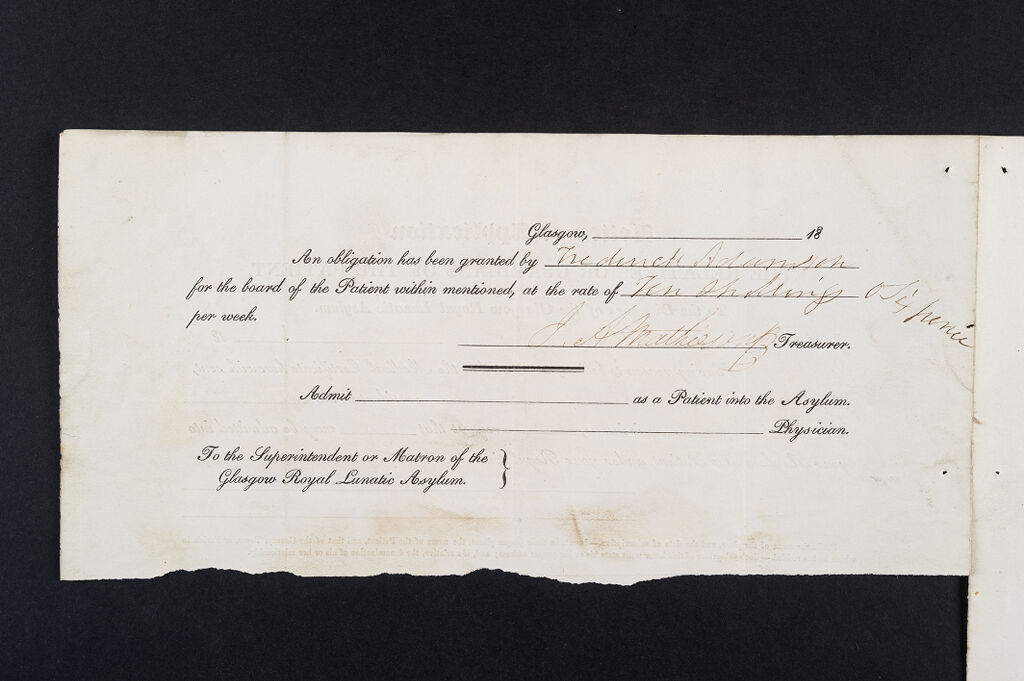 Glasgow, 18
An obligation has been granted by Frederick Adamson
for the board of the Patient within mentioned, at the rate of Ten shillings & Sixpence
per week.
J. A. Mathieson Treasurer.
Admit as a Patient into the Asylum.
Physician.
To the Superintendent or Matron of the
Glasgow Royal Lunatic Asylum.